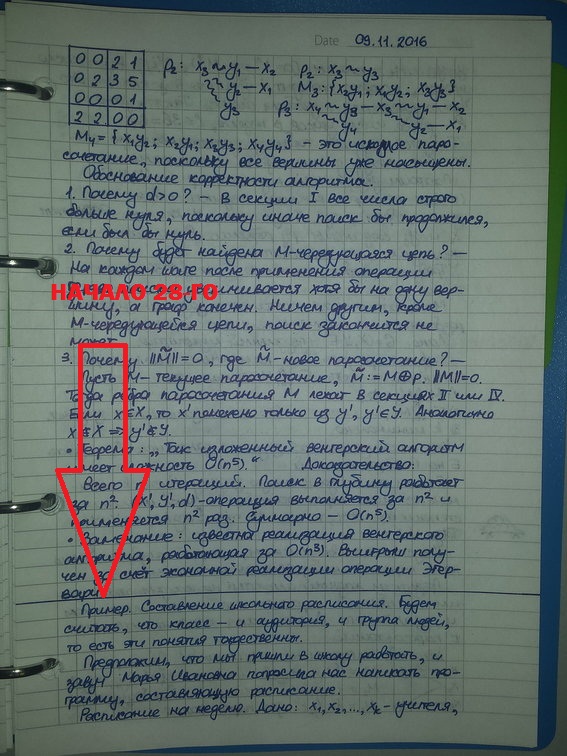 Date 09.11.2016
0 0 2 1
0 2 3 5
0 0 0 1
2 2 0 0
P₂: x₃ ~ y₁ — x₂
~ y₂ — x₁
~ y₃
P₂: x₃ ~ y₃
M₃: {x₂y₁; x₁y₂; x₃y₃}
P₃: x₄ ~ y₃ — x₃ ~ y₁ — x₂
~ y₄ ~ y₂ — x₁
M₄ = {x₁y₂; x₂y₁; x₃y₃; x₄y₄} – это искомое паро-
сочетание, поскольку все вершины уже насыщены.
Обоснование корректности алгоритма.
1. Почему d>0? – В секции I все числа строго
больше нуля, поскольку иначе поиск бы продолжился,
если был бы нуль.
2. Почему будет найдена М-чередующаяся цепь? –
На каждом шаге после применения операции
НАЧАЛО 28-ГО
увеличивается хотя бы на одну вер-
шину, а граф конечен. Ничем другим, кроме
М-чередующейся цепи, поиск закончится не
может.
3. Почему ||M̃||=0, где M̃-новое паросочетание? –
Пусть M – текущее паросочетание, M̃ := M⊕P. ||M||=0.
Тогда рёбра паросочетания M лежат в секциях II или IV.
Если x'∈X, то x' помечено только из y', y'∈Y. Аналогично
x'∉X ⇒ y'∉Y.
• Теорема: „Так изложенный венгерский алгоритм
имеет сложность O(n⁵)." Доказательство:
Всего n итераций. Поиск в глубину работает
за n². (X', Y', d)-операция выполняется за n² и
применяется n² раз. Суммарно – O(n⁵).
• Замечание: известна реализация венгерского
алгоритма, работающая за O(n³). Выигрыш полу-
чен за счёт экономной реализации операции Эгер-
вари.
Пример. Составление школьного расписания. Будем
считать, что класс – и аудитория, и группа людей,
то есть эти понятия тождественны.
Предположим, что мы пришли в школу работать, и
завуч Марья Ивановна попросила нас написать про-
грамму, составляющую расписание.
Расписание на неделю. Дано: x₁, x₂, ..., xₖ – учителя,